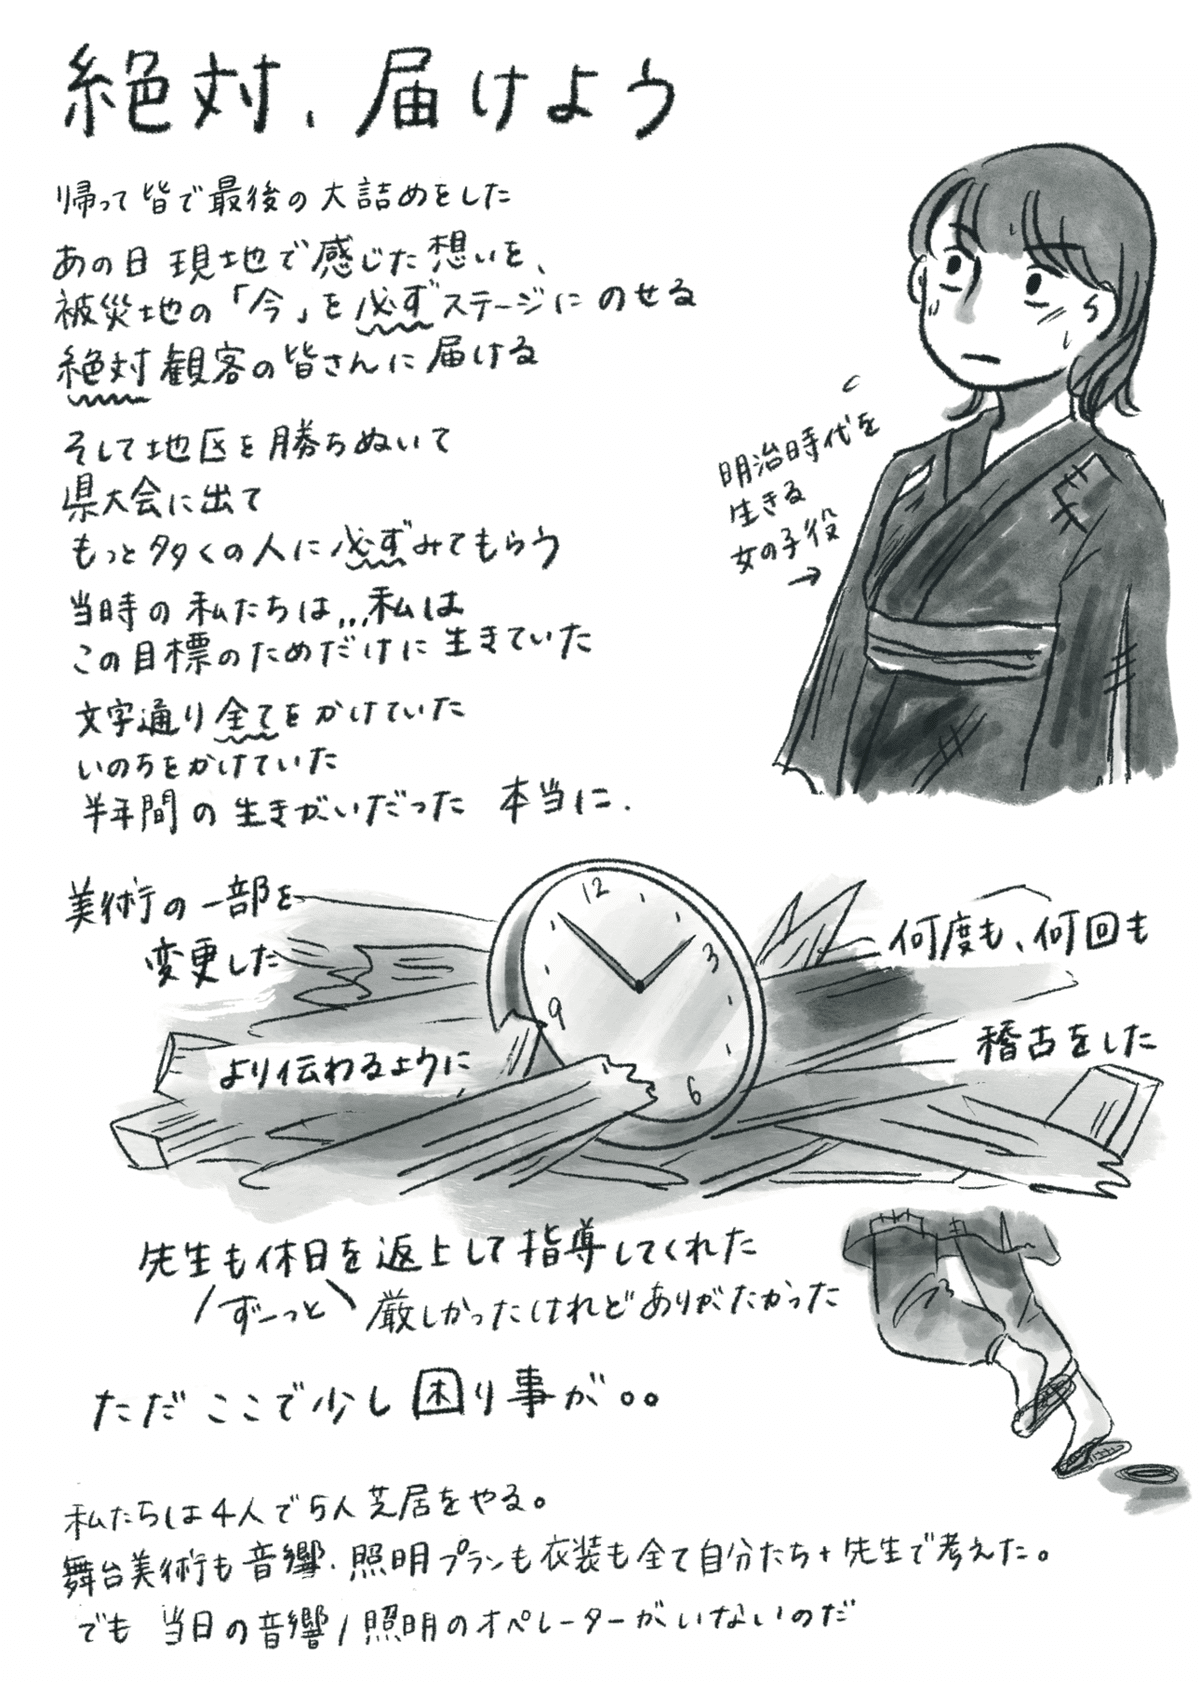 絶対、届けよう
帰って皆で最後の大詰めをした
あの日 現地で感じた想いを、
被災地の「今」を必ずステージにのせる
絶対観客の皆さんに届ける
そして地区を勝ちぬいて
県大会に出て
もっと多くの人に必ずみてもらう
当時の私たちは…私は
この目標のためだけに生きていた
文字通り全てをかけていた
いのちをかけていた
半年間の生きがいだった 本当に.
明治時代を
生きる
女の子役
→
美術の一部を
変更した
より伝わるように
12
3
6
9
何度も、何回も
稽古をした
先生も休日を返上して指導してくれた
/ずーっと\ 厳しかったけれどありがたかった
ただここで少し困り事が。。
私たちは4人で5人芝居をやる。
舞台美術も音響・照明プランも衣装も全て自分たち+先生で考えた。
でも 当日の音響/照明のオペレーターがいないのだ